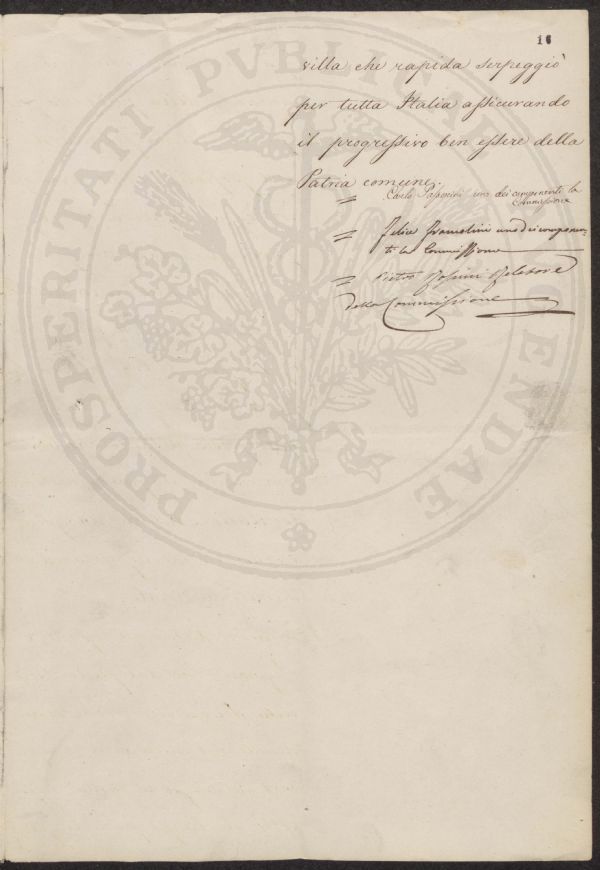 16
villa che rapida serpeggiò
per tutta Italia assicurando
il progressivo ben essere della
Patria comune.
= Carlo uno dei componenti la
Commissione
= Felice uno dei componen-
ti la Commissione
= Pietro Relatore
della Commissione
PROSPERITATI PVBLICAE AVGENDAE